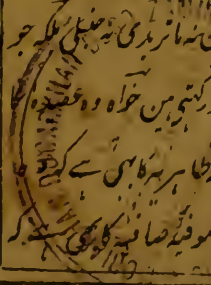 نہ ماتریدی نہ حنبلی بلکہ جو
رکہتے ہین خواہ وہ عقیدہ
ہر یہ کا بہی ہے کہ
صوفیہ صافیہ کا بہی ہے کہ